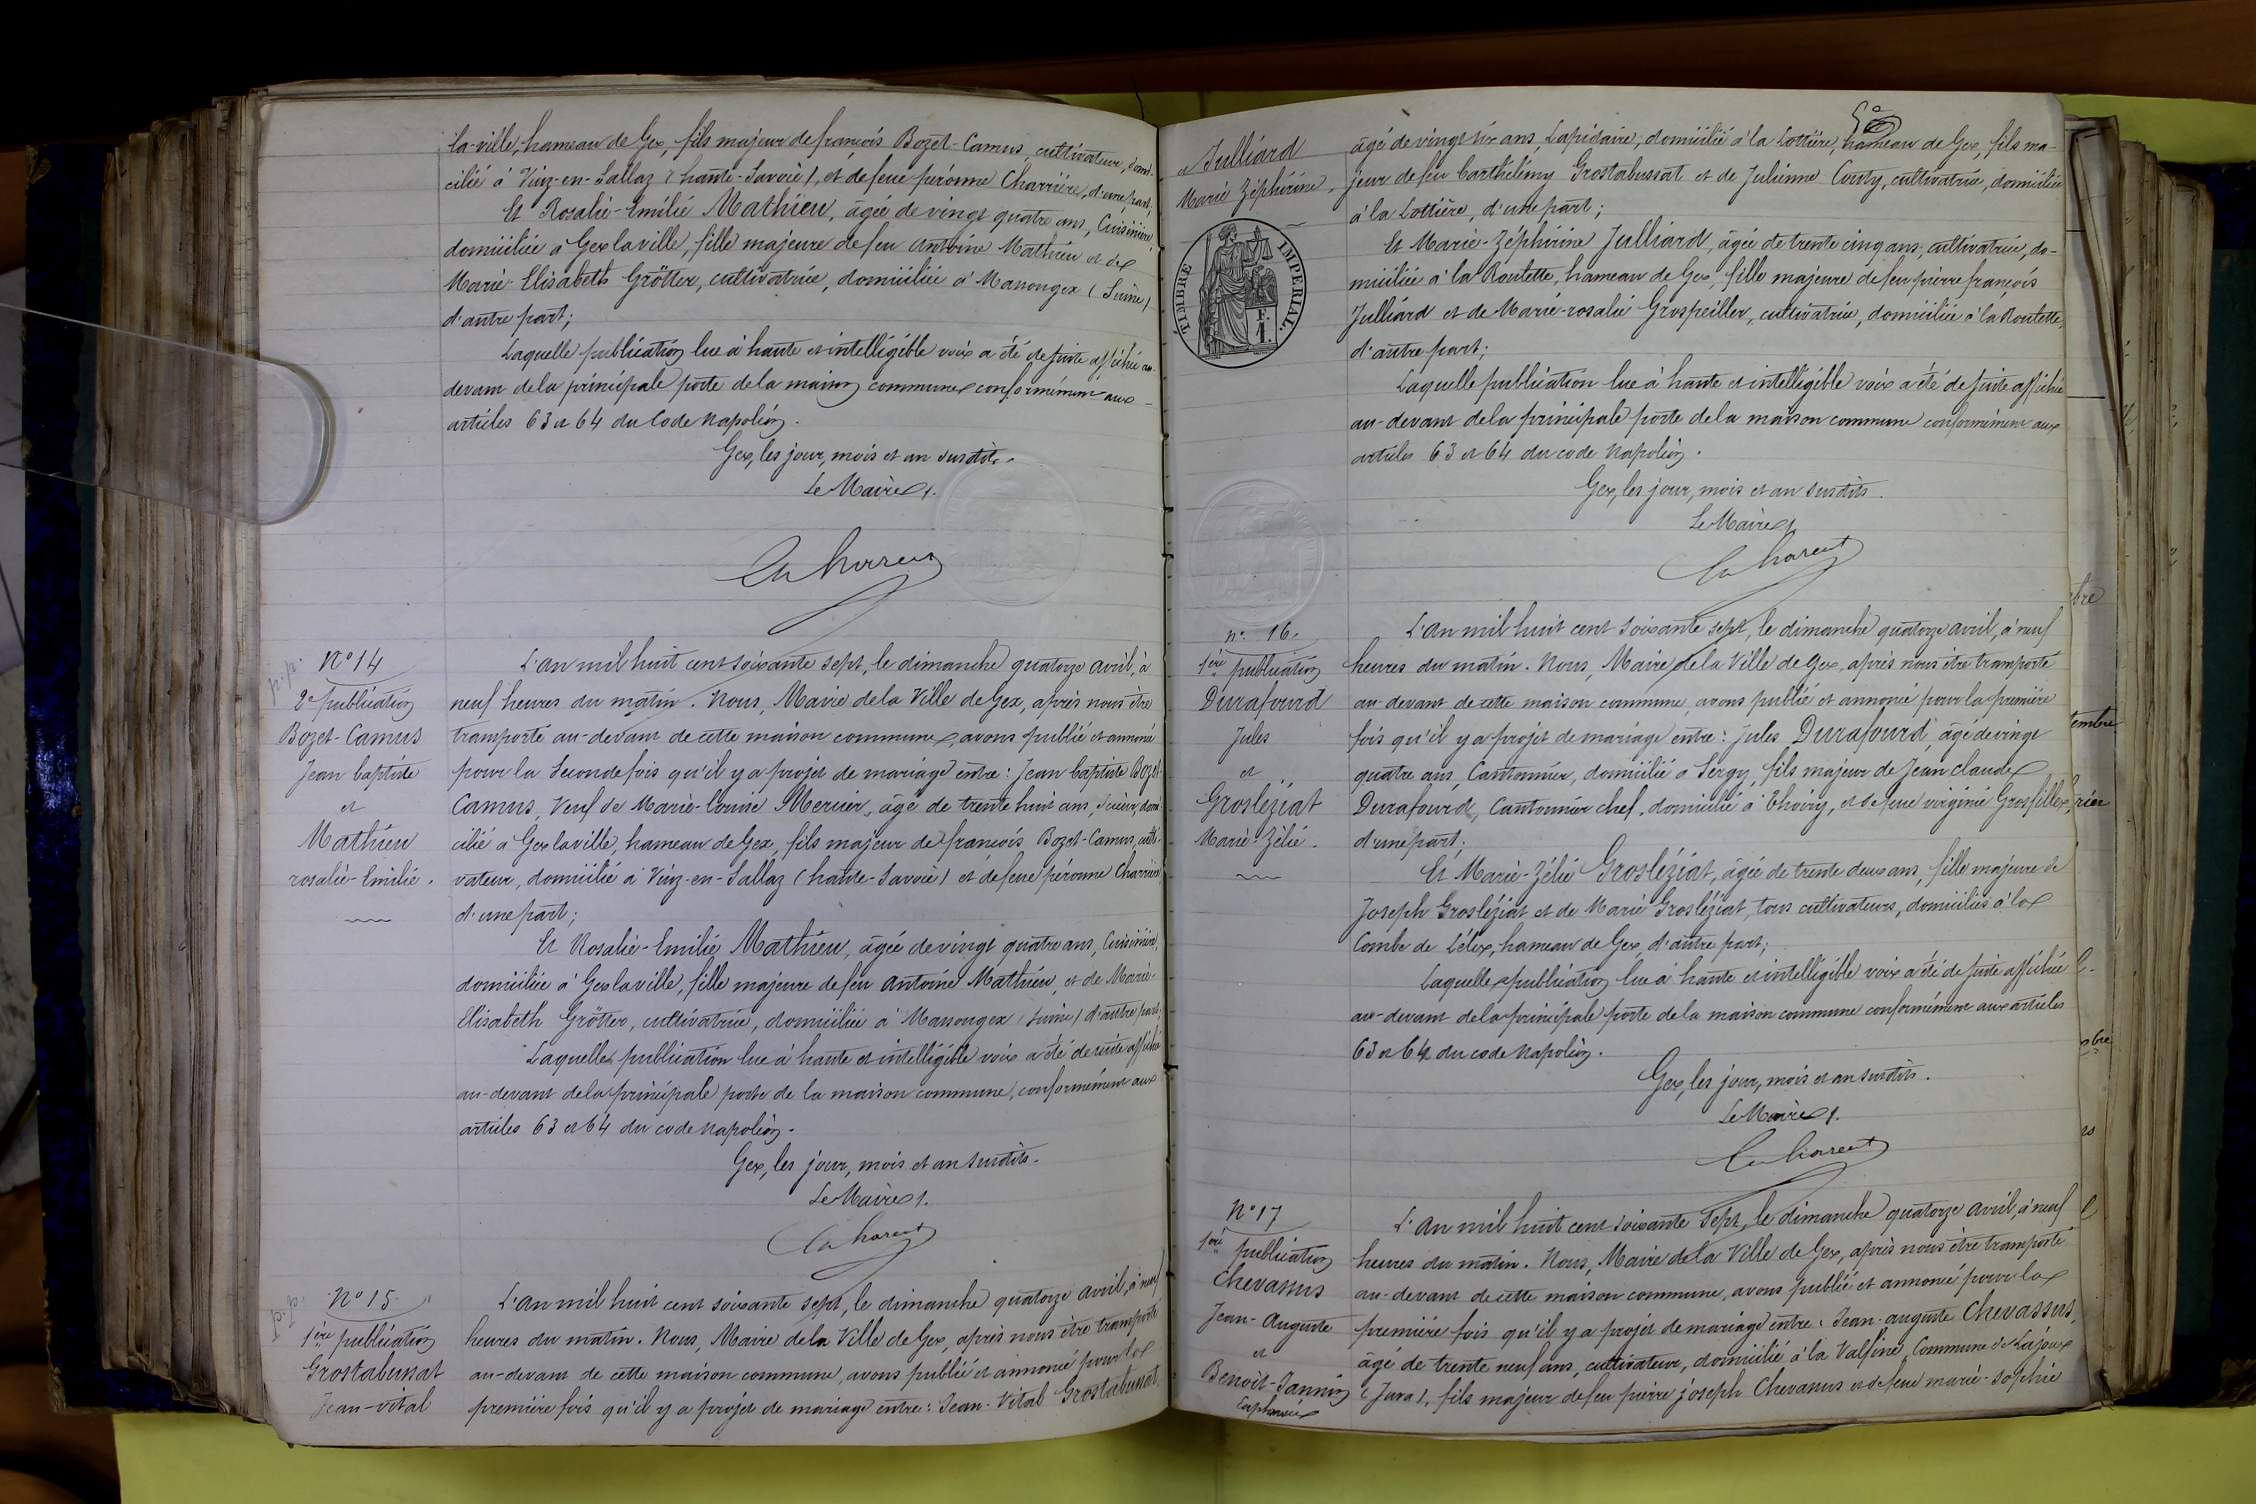 la-ville, hameau de Gex, fils majeur de françois Bozet-Camus, cultivateur, domi-
cilié à Viuz-en-Sallaz (haute-Savoie), et de feue péronne Charrière, d'une part,
Et Rosalie-Emilie Mathieu, âgée de vingt quatre ans, Cuisinière,
domiciliée à Gex la ville, fille majeure de feu Antoine Mathieu et de
Marie-Elisabeth Grötter, cultivatrice, domiciliée à Massongex (Suisse)
d'autre part;
Laquelle publication lue à haute et intelligible voix a été de suite affichée au-
devant de la principale porte de la maison commune conformément aux
articles 63 et 64 du Code Napoléon.
Gex, les jour, mois et an susdits.
Le Maire,
N° 14
2e publication
Bozet-Camus
Jean baptiste
et
Mathieu
rosalie-Emilie.
L'an mil huit cent soixante sept, le dimanche quatorze avril, à
neuf heures du matin. Nous, Maire de la Ville de Gex, après nous être
transporté au-devant de cette maison commune, avons publié et annoncé
pour la Seconde fois qu'il y a projet de mariage entre: Jean baptiste Bozet-
Camus, Veuf de Marie-Louise Mercier, âgé de trente huit ans, Scieur, domi-
cilié à Gex la ville, hameau de Gex, fils majeur de françois Bozet-Camus, culti-
vateur, domicilié à Viuz-en-Sallaz (haute-Savoie) et de feue péronne Charrière
d'une part;
Et Rosalie-Emilie Mathieu, âgée de vingt quatre ans, Cuisinière,
domiciliée à Gex la ville, fille majeure de feu Antoine Mathieu, et de Marie-
Elisabeth Grötter, cultivatrice, domiciliée à Massongex (Suisse) d'autre part;
Laquelle publication lue à haute et intelligible voix a été de suite affichée
au-devant de la principale porte de la maison commune, conformément aux
articles 63 et 64 du code Napoléon.
Gex, les jour, mois et an susdits.
Le Maire,
N° 15
1ère publication
Grostabussat
Jean-vital
L'an mil huit cent soixante sept, le dimanche quatorze avril, à neuf
heures du matin. Nous, Maire de la Ville de Gex, après nous être transporté
au-devant de cette maison commune, avons publié et annoncé pour la
première fois qu'il y a projet de mariage entre: Jean-Vital Grostabussat,
et Julliard
Marie Zéphirine,
TIMBRE IMPERIAL.
F. 1.
âgé de vingt six ans, Lapidaire, domicilié à la Lottière, hameau de Gex, fils ma-
jeur de feu barthélemy Grostabussat et de Julienne Couty, cultivatrice, domiciliée
à la Lottière, d'une part;
Et Marie-Zéphirine Julliard, âgée de trente cinq ans, cultivatrice, do-
miciliée à la Routette, hameau de Gex, fille majeure de feu pierre françois
Julliard et de Marie-rosalie Grospeiller, cultivatrice, domiciliée à la Routette,
d'autre part;
Laquelle publication lue à haute et intelligible voix a été de suite affichée
au-devant de la principale porte de la maison commune conformément aux
articles 63 et 64 du code Napoléon.
Gex, les jour, mois et an susdits.
Le Maire,
n° 16.
1ère publication
Durafourd
Jules
et
Grosléziat
Marie-Zélie.
L'an mil huit cent soixante sept, le dimanche quatorze avril, à neuf
heures du matin. Nous, Maire de la Ville de Gex, après nous être transporté
au-devant de cette maison commune, avons publié et annoncé pour la première
fois qu'il y a projet de mariage entre: Jules Durafourd, âgé de vingt
quatre ans, Cantonnier, domicilié à Sergy, fils majeur de Jean claude
Durafourd, Cantonnier chef, domicilié à Thoiry, et de feue virginie Grosfilley,
d'une part;
Et Marie-Zélie Grosléziat, âgée de trente deux ans, fille majeure de
Joseph Grosléziat et de Marie Grosléziat, tous cultivateurs, domiciliés à la
Combe de Lélex, hameau de Gex, d'autre part;
Laquelle publication lue à haute et intelligible voix a été de suite affichée
au-devant de la principale porte de la maison commune conformément aux articles
63 et 64 du code Napoléon.
Gex, les jour, mois et an susdits.
Le Maire,
N° 17
1ère publication
Chevassus
Jean-Auguste
et
Benoit-Jannin
L'an mil huit cent soixante sept, le dimanche quatorze avril, à neuf
heures du matin. Nous, Maire de la Ville de Gex, après nous être transporté
au-devant de cette maison commune, avons publié et annoncé pour la
première fois qu'il y a projet de mariage entre: Jean-auguste Chevassus,
âgé de trente neuf ans, cultivateur, domicilié à la Valfine, Commune de Lajoux
(Jura), fils majeur de feu pierre joseph Chevassus et de feue marie-sophie